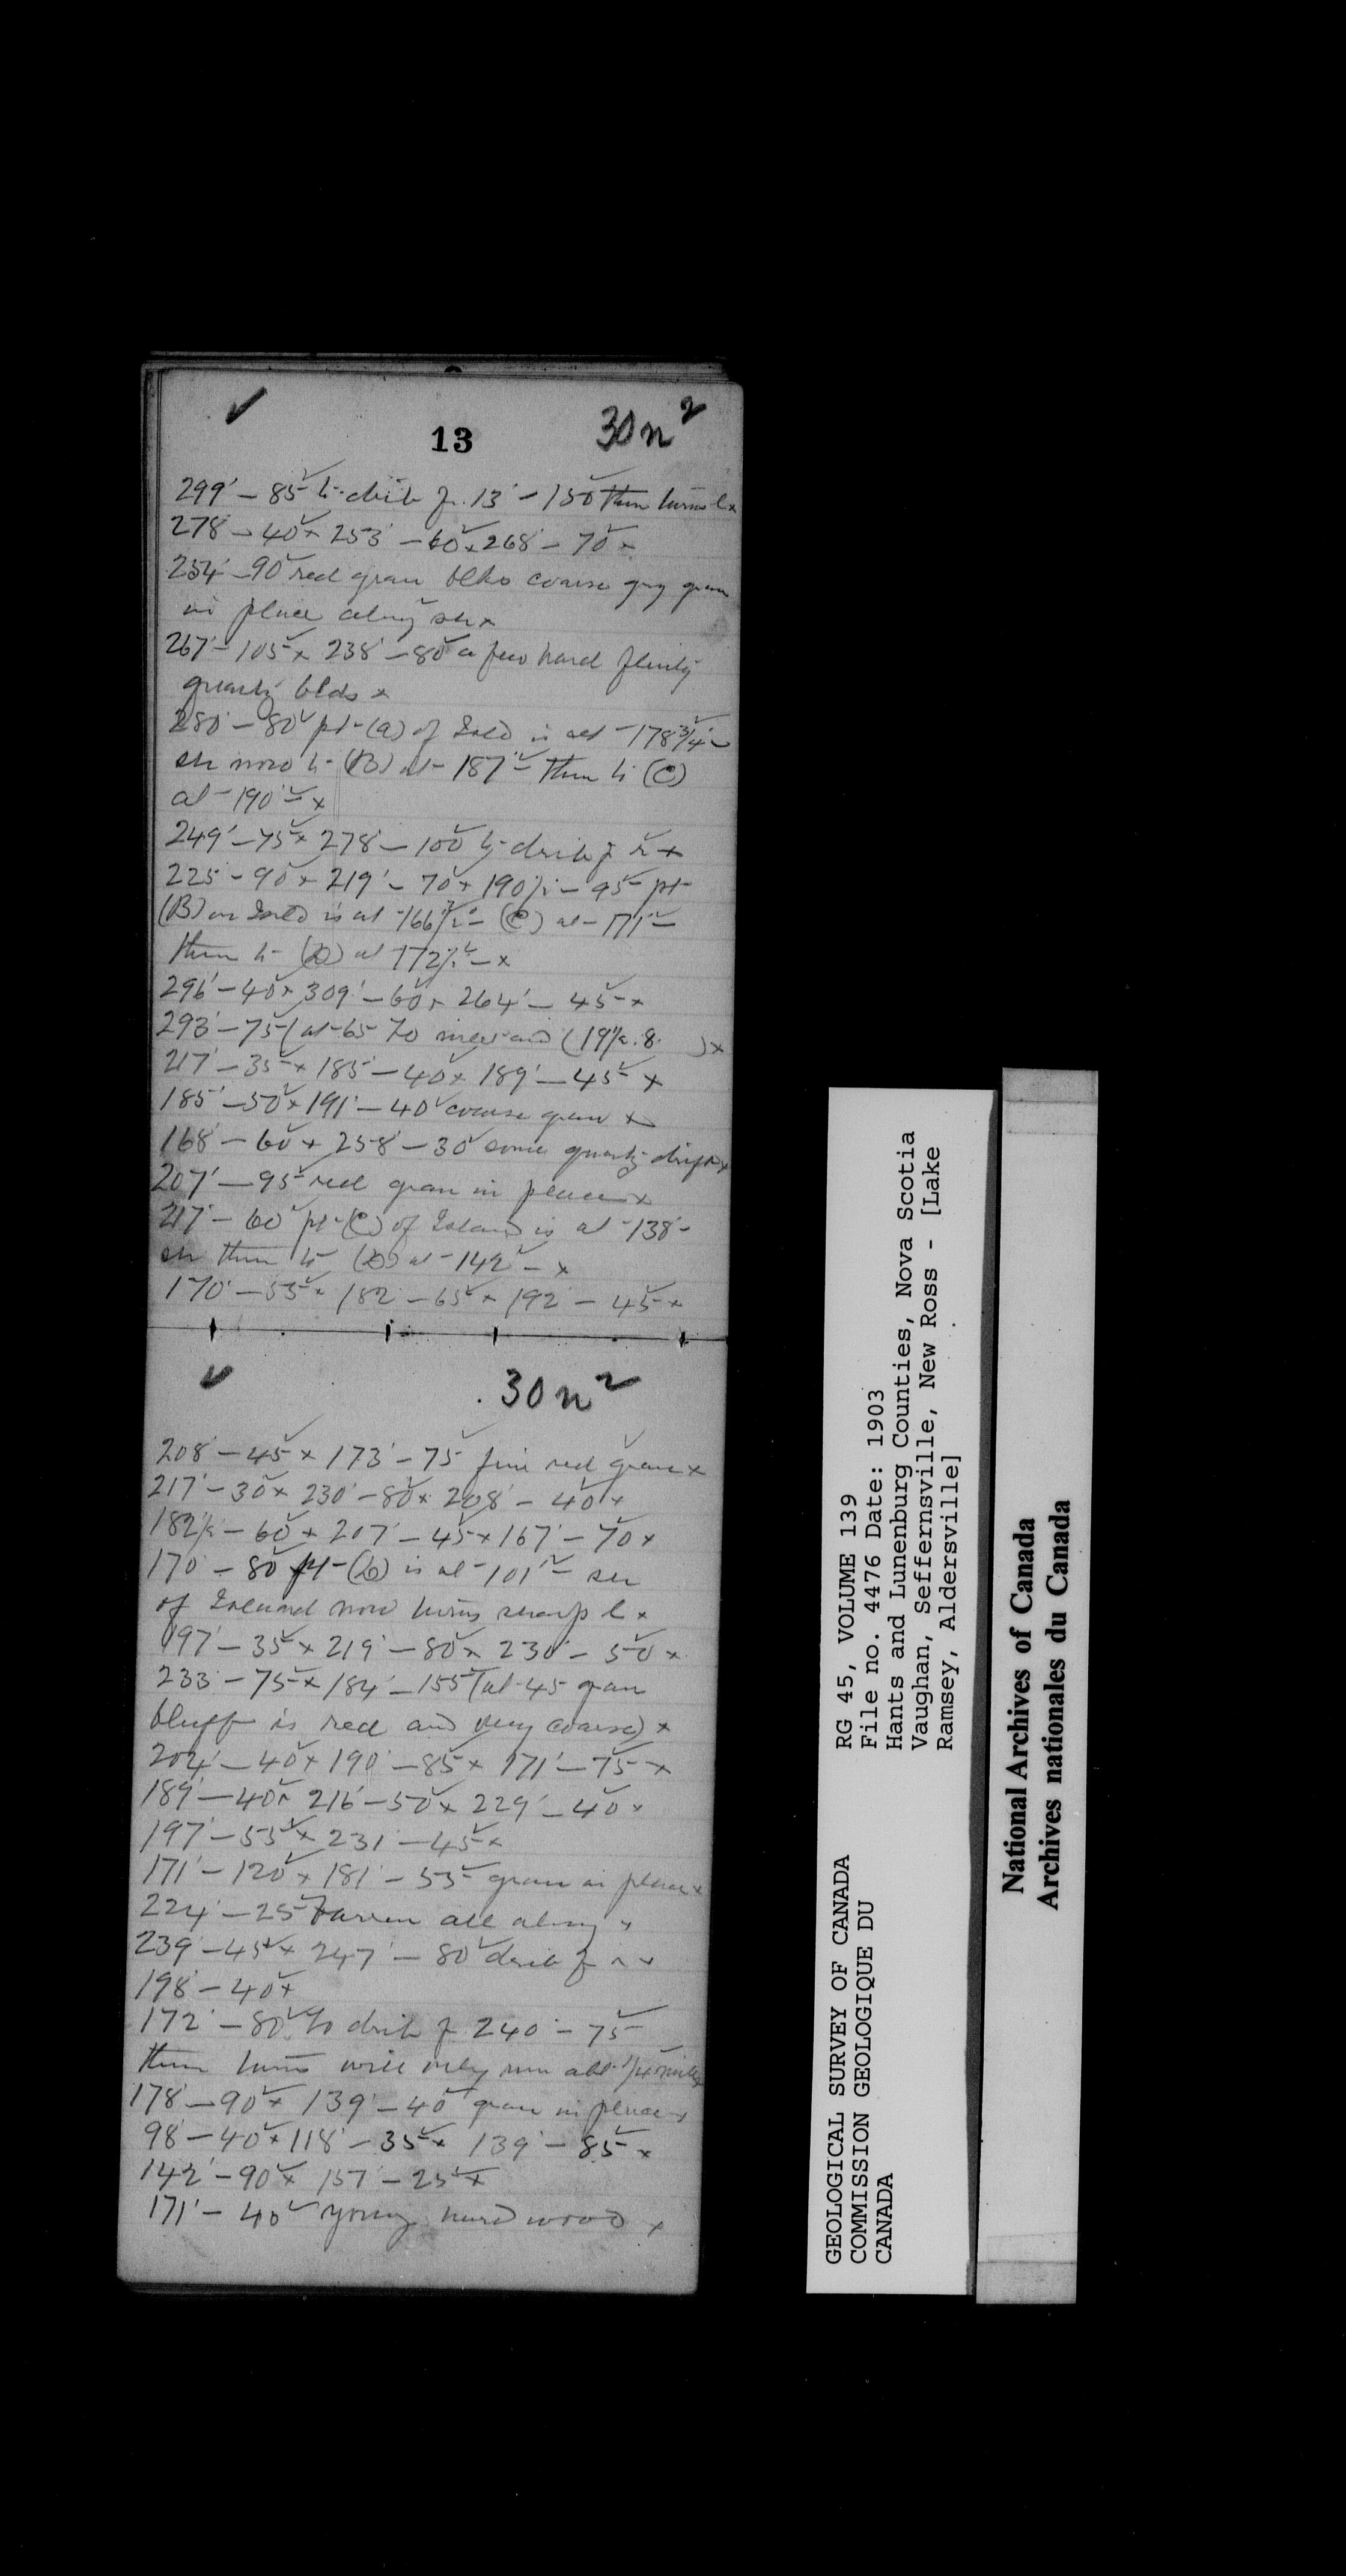 13
30 n 2
299' – 85 to drib fr. 13' – 150 then turns l x
278' – 40 x 253' – 60 x 268' – 70 x
254' – 90 red gran blks coarse gray gran
in place along sh x
267' – 105 x 238' – 80 a few hard flinty
quartz blds x
280' – 80 pt (a) of Isld is at 178 3/4 –
sh now to (B) at 187 – then to (C)
at 190 – x
249' – 75 x 278' – 100 to drib fr r x
225' – 90 x 219' – 70 x 190 1/2 – 95 pt
(B) on Isld is at 166 1/2 – (C) at 171 –
then to (D) at 172 1/2 – x
296' – 40 x 309' – 60 x 264' – 45 x
293' – 75 (at 65 70 and (19 8. ) x
217' – 35 x 185' – 40 x 189' – 45 x
185' – 50 x 191' – 40 coarse gran x
168' – 60 x 258' – 30 some quartz drift x
207' – 95 red gran in place x
217' – 60 pt (C) of Island is at 138 –
sh then to (D) at 142 – x
170' – 55 x 182' – 65 x 192' – 45 x
30 n 2
208' – 45 x 173' – 75 fine red gran x
217' – 30 x 230' – 80 x 208' – 40 x
182 1/2 – 60 x 207' – 45 x 167' – 70 x
170' – 80 pt (D) is at 101 – sh
of Island now turns sharp l x
197' – 35 x 219' – 80 x 230' – 50 x
233' – 75 x 184' – 155 (at 45 gran
bluff is red and very coarse) x
204' – 40 x 190' – 85 x 171' – 75 x
189' – 40 x 216' – 50 x 229' – 40 x
197' – 55 x 231' – 45 x
171' – 120 x 181' – 55 gran in place x
224' – 25 barren all along x
239' – 45 x 247' – 80 drib fr r x
198' – 40 x
172' – 80 to drib fr 240' – 75
then turns will only run abt 1/4 mile x
178' – 90 x 139' – 40 gran in place x
98' – 40 x 118' – 35 x 139' – 85 x
142' – 90 x 157' – 25 x
171' – 40 young hard wood x
GEOLOGICAL SURVEY OF CANADA
COMMISSION GEOLOGIQUE DU
CANADA
RG 45, VOLUME 139
File no. 4476 Date: 1903
Hants and Lunenburg Counties, Nova Scotia
Vaughan, Seffernsville, New Ross - [Lake
Ramsey, Aldersville]
National Archives of Canada
Archives nationales du Canada